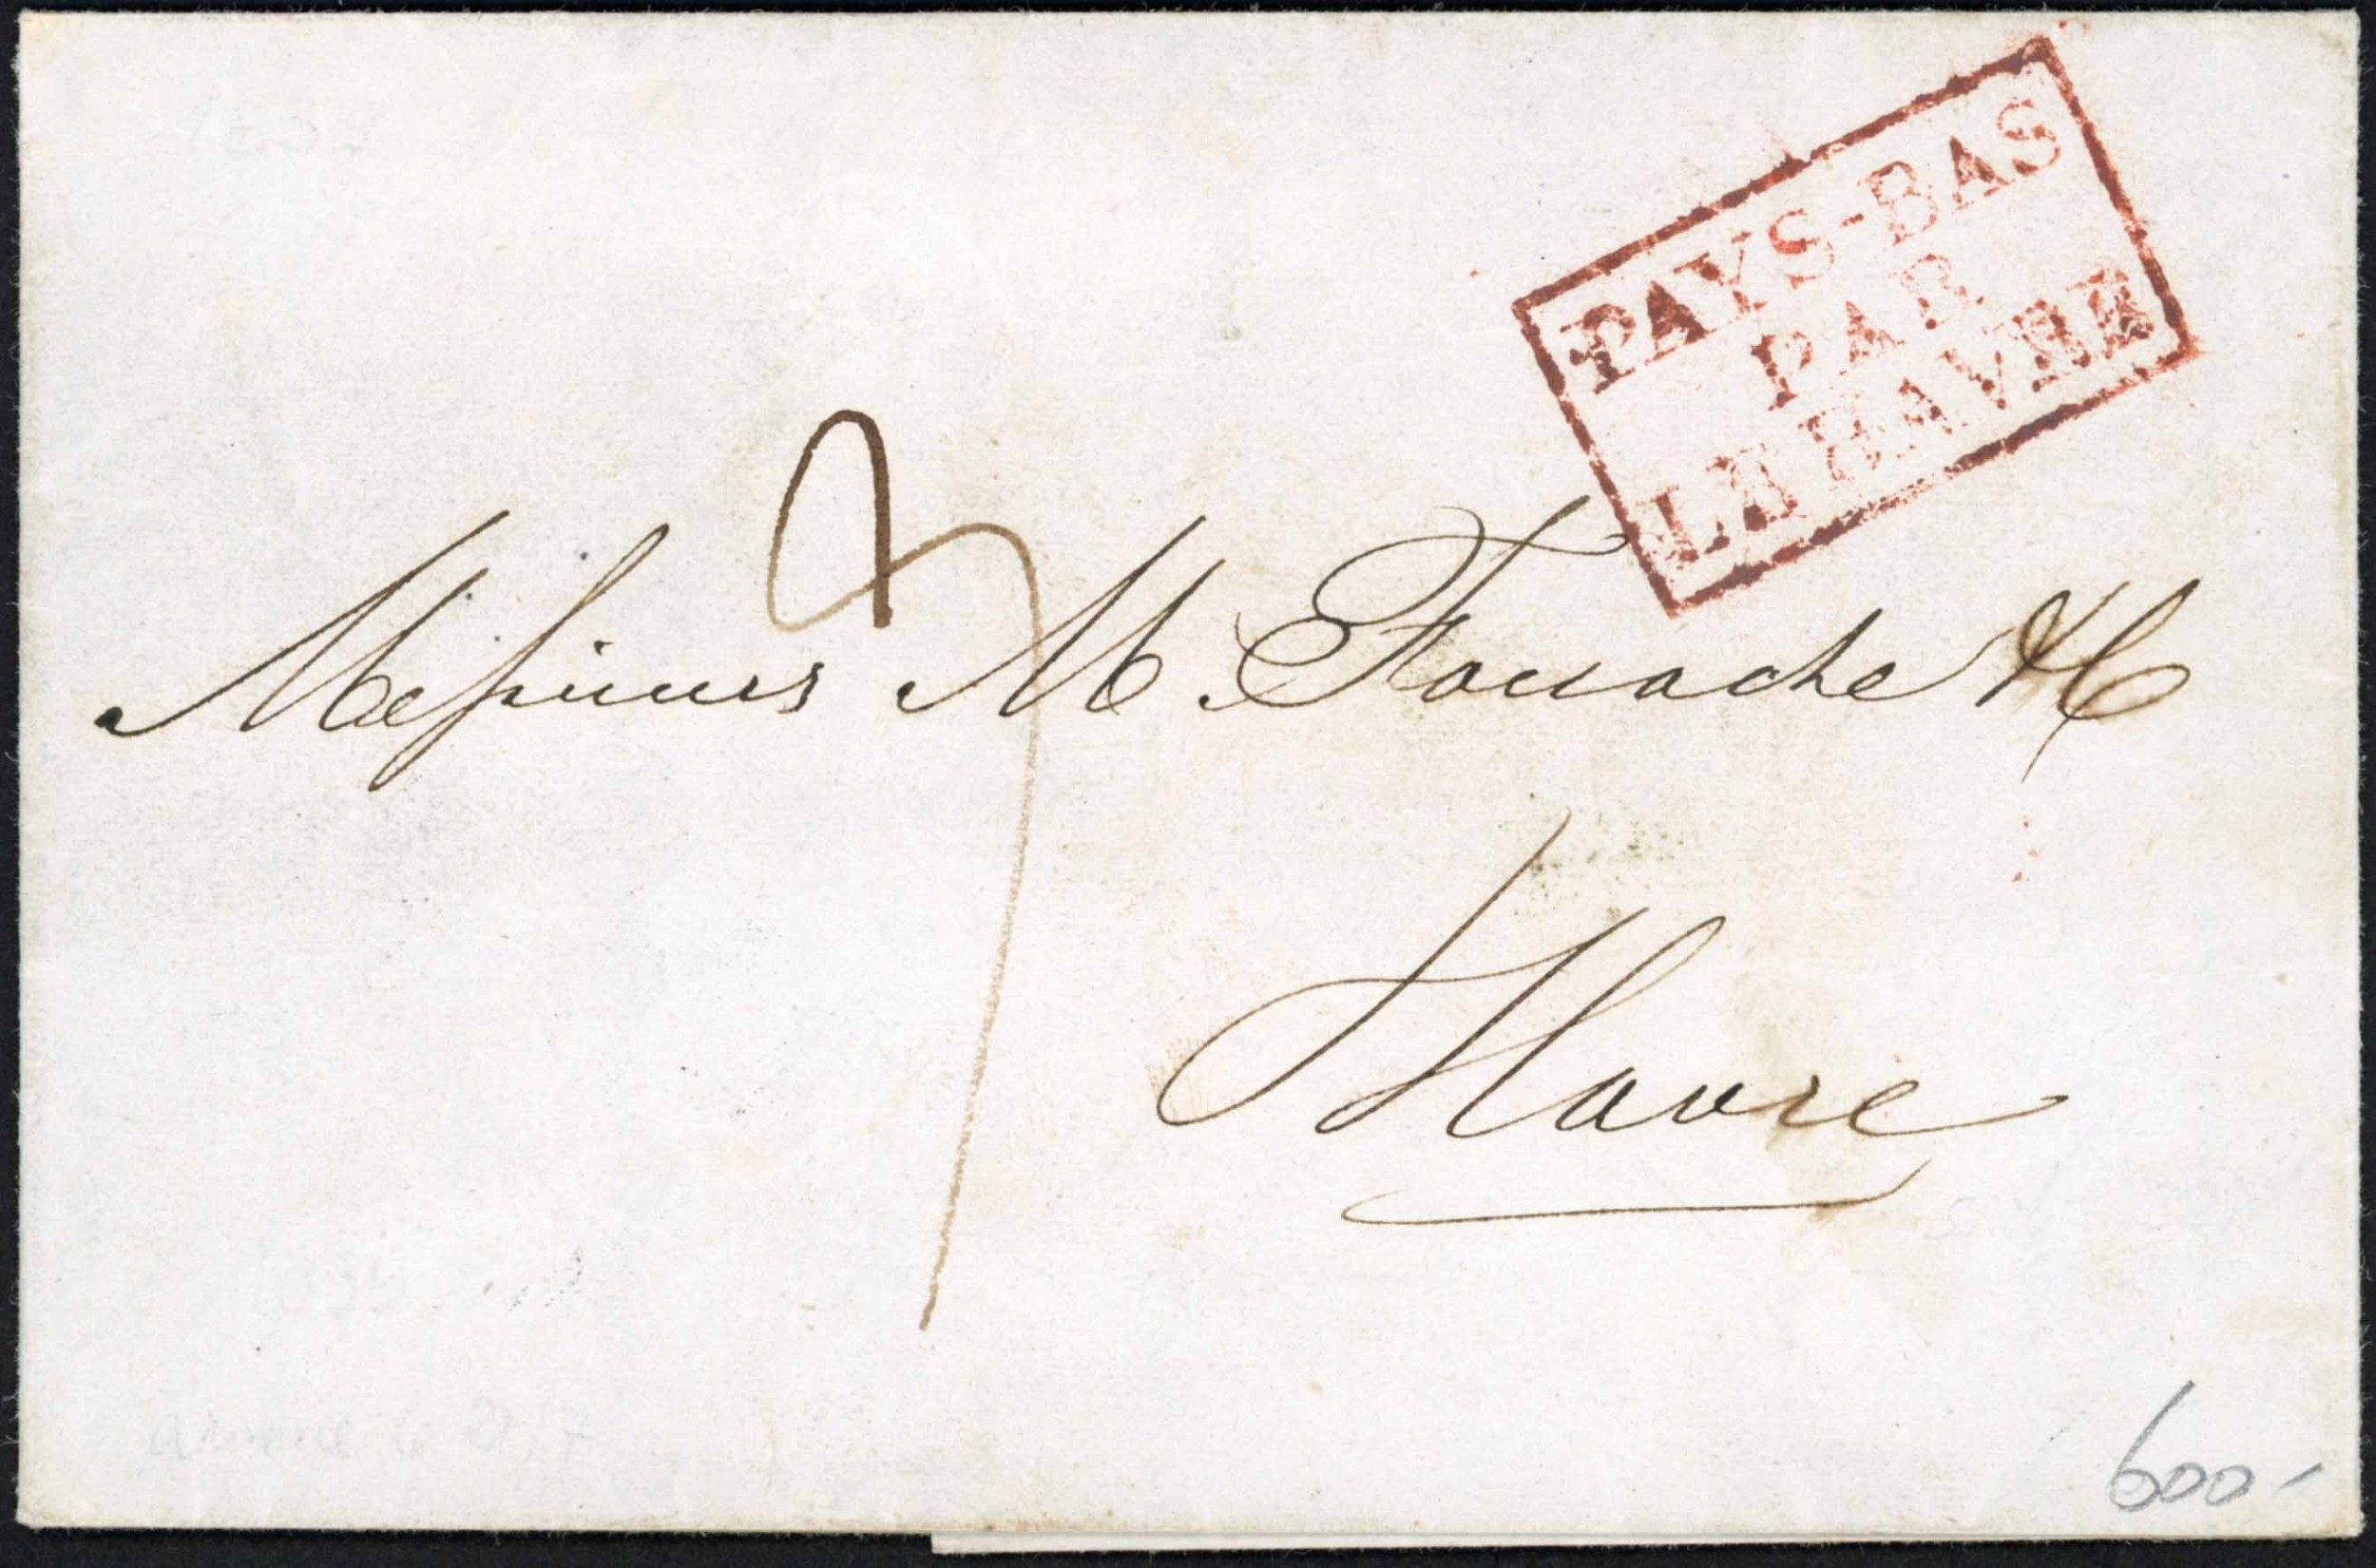 PAYS-BAS
PAR
LE HAVRE
7
Messieurs M. Fouache & C
Havre
600-